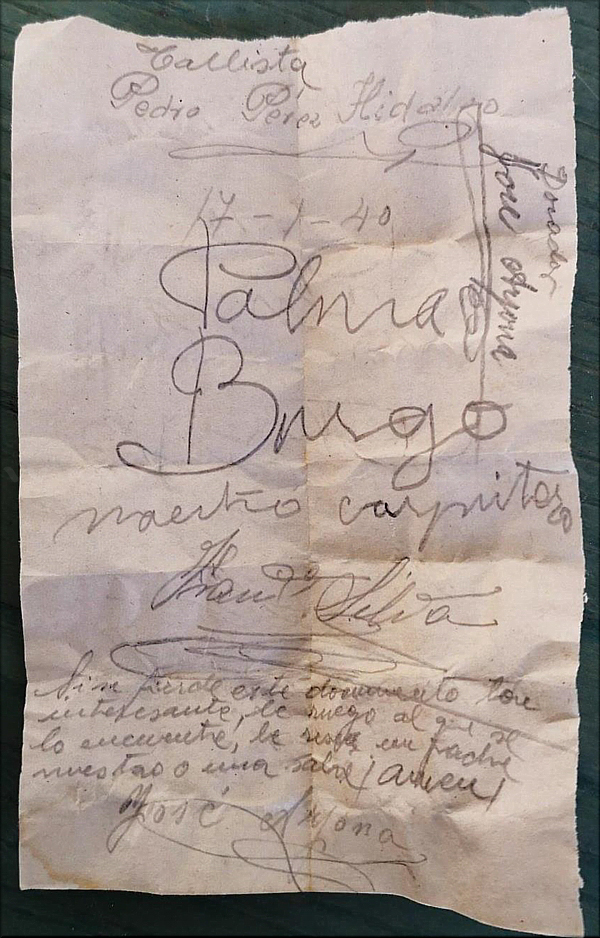 Tallista
Pedro Pérez Hidalgo
17-1-40
Palma
Burgo
maestro carpintero
Franco Silva
Si se pierde este documento tan
interesante, le ruego al que se
lo encuentre, le rece un padre
nuestro o una salve (amen)
José Arjona
Dorador
José Arjona